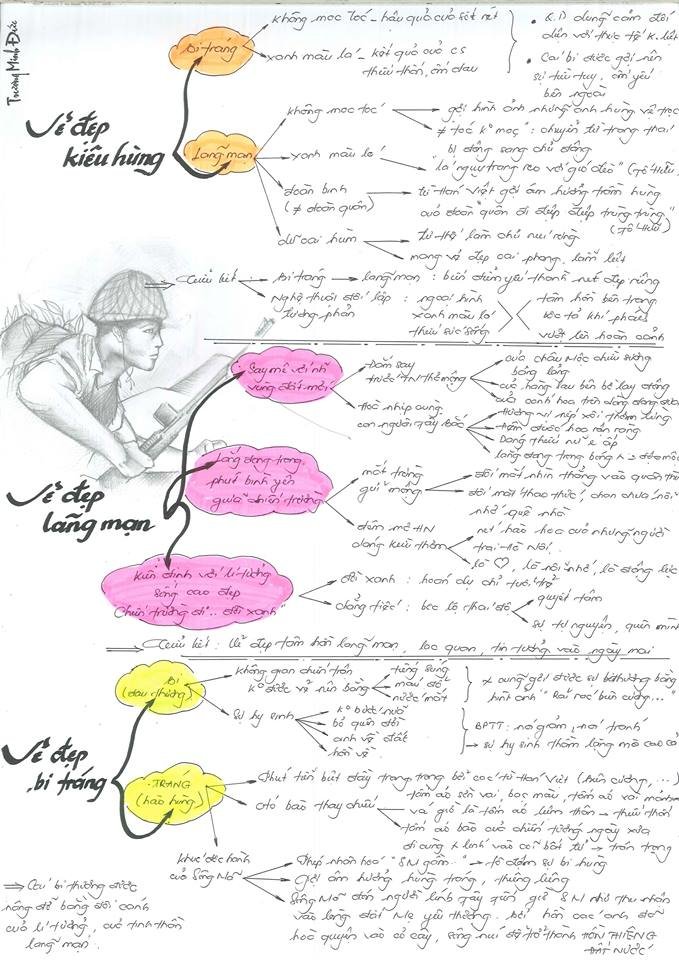 Trương Minh Đức
Vẻ đẹp
kiêu hùng
Bi tráng
không mọc tóc - hậu quả của sốt rét
xanh màu lá - kết quả của cs
thiếu thốn, ốm đau
• Q.D dũng cảm đối
diện với thực tế k.liệt
• Cái bi được gợi nên
sự tiều tụy, ốm yếu
bên ngoài
Lãng mạn
không mọc tóc
gợi hình ảnh những anh hùng vệ trọc
≠ "tóc ko mọc": chuyển từ trạng thái
bị động sang chủ động
xanh màu lá
"lá ngụy trang reo với gió đèo" (Tố Hữu)
đoàn binh
(≠ đoàn quân)
từ Hán Việt gợi âm hưởng trầm hùng
của đoàn "quân đi điệp điệp trùng trùng"
(Tố Hữu)
dữ oai hùm
tư thế làm chủ núi rừng
mang vẻ đẹp oai phong, lẫm liệt
⇒ Tiểu kết: Bi tráng → lãng mạn: thanh nét đẹp riêng
Nghệ thuật đối lập
tương phản
: ngoại hình
xanh màu lá
thiếu sức sống
tâm hồn bên trong
khí phách
vượt lên hoàn cảnh
Vẻ đẹp
lãng mạn
Say mê với
vùng đất mới
Đắm say
trước TN thơ mộng
của châu Mộc chiều sương
bảng lảng
của hàng lau bên bờ lay động
của cánh hoa trên dòng đong đưa
Hòa nhịp cùng
con người Tây Bắc
Hương vị nếp xôi thơm lừng
đuốc hoa rộn ràng
Dáng thiếu nữ e ấp
Lắng đọng trong
phút bình yên
giữa chiến trường
mắt trừng
gửi mộng
đôi mắt nhìn thẳng vào quân thù
đôi mắt thao thức, chan chứa nỗi
nhớ quê nhà
đêm mơ HN
dáng kiều thơm
nét hào hoa của những người
trai Hà Nội.
là ♡, là nỗi nhớ, là động lực
Kiên định với lí tưởng
sống cao đẹp
"Chiến trường đi... đời xanh"
đời xanh: hoán dụ chỉ tuổi trẻ
chẳng tiếc: bộc lộ thái độ
quyết tâm
sự tự nguyện, quên mình
⇒ Tiểu kết: Vẻ đẹp tâm hồn lãng mạn, lạc quan, tin tưởng vào ngày mai
Vẻ đẹp
bi tráng
Bi
(đau thương)
không gian chiến trận
ko được vẽ nên bằng
tiếng súng
máu đổ
nước mắt
+ cũng gợi được sự bi thương bằng
hình ảnh "Rải rác biên cương..."
Sự hy sinh
ko bước nữa
bỏ quên đời
anh về đất
hồn về
BPTT: nói giảm, nói tránh
→ sự hy sinh thầm lặng mà cao cả
TRÁNG
(hào hùng)
Phút tiễn biệt đầy trang trọng bởi các từ Hán Việt (biên cương,...)
Áo bào thay chiếu
tấm áo sờn vai, bạc màu, tấm áo vá
và giờ là tấm áo liệm thân → thiếu thốn
tấm áo bào của chiến tướng ngày xưa
đi cùng + lính vào cõi bất tử → trân trọng
khúc độc hành
của Sông Mã
Phép nhân hóa: "SM gầm..." → tô đậm sự bi hùng
Gợi âm hưởng hùng tráng, thiêng liêng
Sông Mã đón người lính Tây Tiến giờ SM như thu nhận
vào lòng đất Mẹ yêu thương. Bởi hồn các anh đã
hòa quyện vào cỏ cây, sông núi để trở thành HỒN THIÊNG
ĐẤT NƯỚC.
⇒ Cái bi thương được
nâng đỡ bằng đôi cánh
của lí tưởng, của tinh thần
lãng mạn.